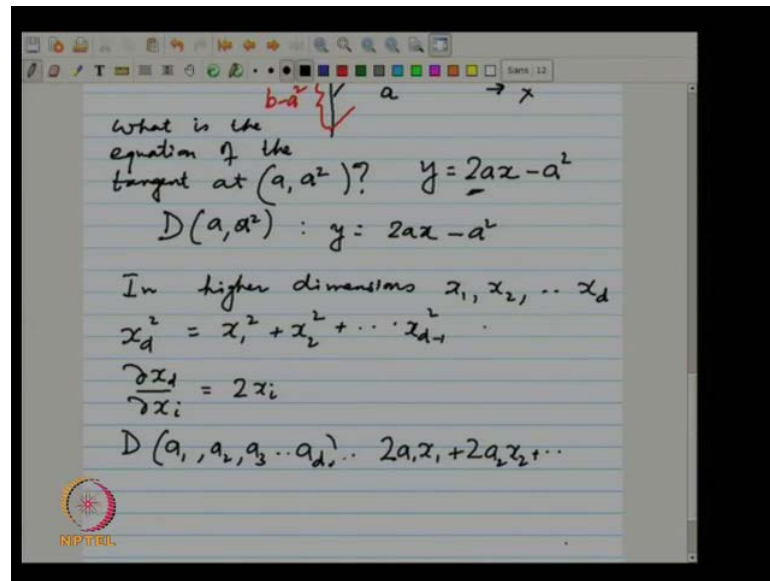 Sans 12
b-a² { a → x
What is the
equation of the
tangent at (a, a²)? y = 2ax - a²
D(a, a²) : y = 2ax - a²
In higher dimensions x₁, x₂, .. x_d
x_d² = x₁² + x₂² + ... x_{d-1}²
∂x_d/∂x_i = 2x_i
D(a₁, a₂, a₃ .. a_d) .. 2a₁x₁ + 2a₂x₂ + ..
NPTEL